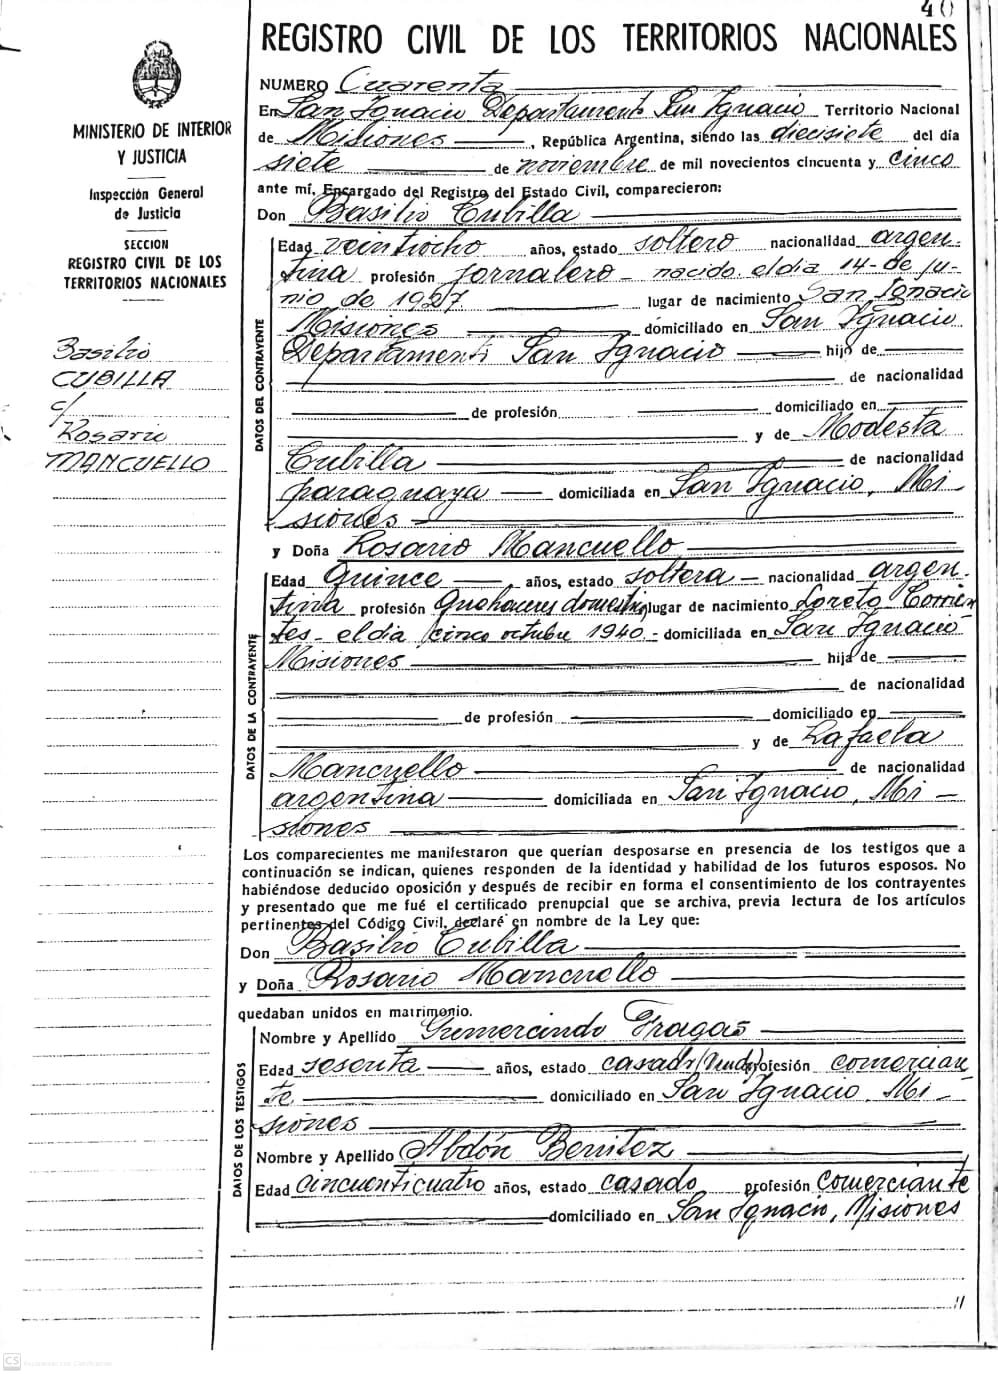 40
REGISTRO CIVIL DE LOS TERRITORIOS NACIONALES
MINISTERIO DE INTERIOR
Y JUSTICIA
Inspección General
de Justicia
SECCION
REGISTRO CIVIL DE LOS
TERRITORIOS NACIONALES
Basilio
CUBILLA
c/
Rosario
MANCUELLO
NUMERO Cuarenta
En San Ignacio Departamento San Ignacio Territorio Nacional
de Misiones, República Argentina, siendo las diecisiete del día
siete de noviembre de mil novecientos cincuenta y cinco
ante mí, Encargado del Registro del Estado Civil, comparecieron:
Don Basilio Cubilla
DATOS DEL CONTRAYENTE
Edad veintiocho años, estado soltero nacionalidad argen-
tina profesión jornalero - nacido el día 14 - de ju-
nio de 1927 lugar de nacimiento San Ignacio
Misiones domiciliado en San Ignacio
Departamento San Ignacio hijo de
de nacionalidad
de profesión domiciliado en
y de Modesta
Cubilla de nacionalidad
paraguaya domiciliada en San Ignacio, Mi
siones
y Doña Rosario Mancuello
DATOS DE LA CONTRAYENTE
Edad Quince, años, estado soltera - nacionalidad argen-
tina profesión Quehaceres domestic lugar de nacimiento Loreto Corrien
tes - el dia cinco octubre 1940 - domiciliada en San Ignacio
Misiones hija de
de nacionalidad
de profesión domiciliado en
y de Rafaela
Mancuello de nacionalidad
argentina domiciliada en San Ignacio, Mi -
siones
Los comparecientes me manifestaron que querían desposarse en presencia de los testigos que a
continuación se indican, quienes responden de la identidad y habilidad de los futuros esposos. No
habiéndose deducido oposición y después de recibir en forma el consentimiento de los contrayentes
y presentado que me fué el certificado prenupcial que se archiva, previa lectura de los artículos
pertinentes del Código Civil, declaré en nombre de la Ley que:
Don Basilio Cubilla
y Doña Rosario Mancuello
quedaban unidos en matrimonio.
DATOS DE LOS TESTIGOS
Nombre y Apellido Gumercindo Fragas
Edad sesenta años, estado casado profesión comercian
te domiciliado en San Ignacio, Mi -
siones
Nombre y Apellido Abdón Benitez
Edad cincuenticuatro años, estado casado profesión comerciante
domiciliado en San Ignacio, Misiones
CS